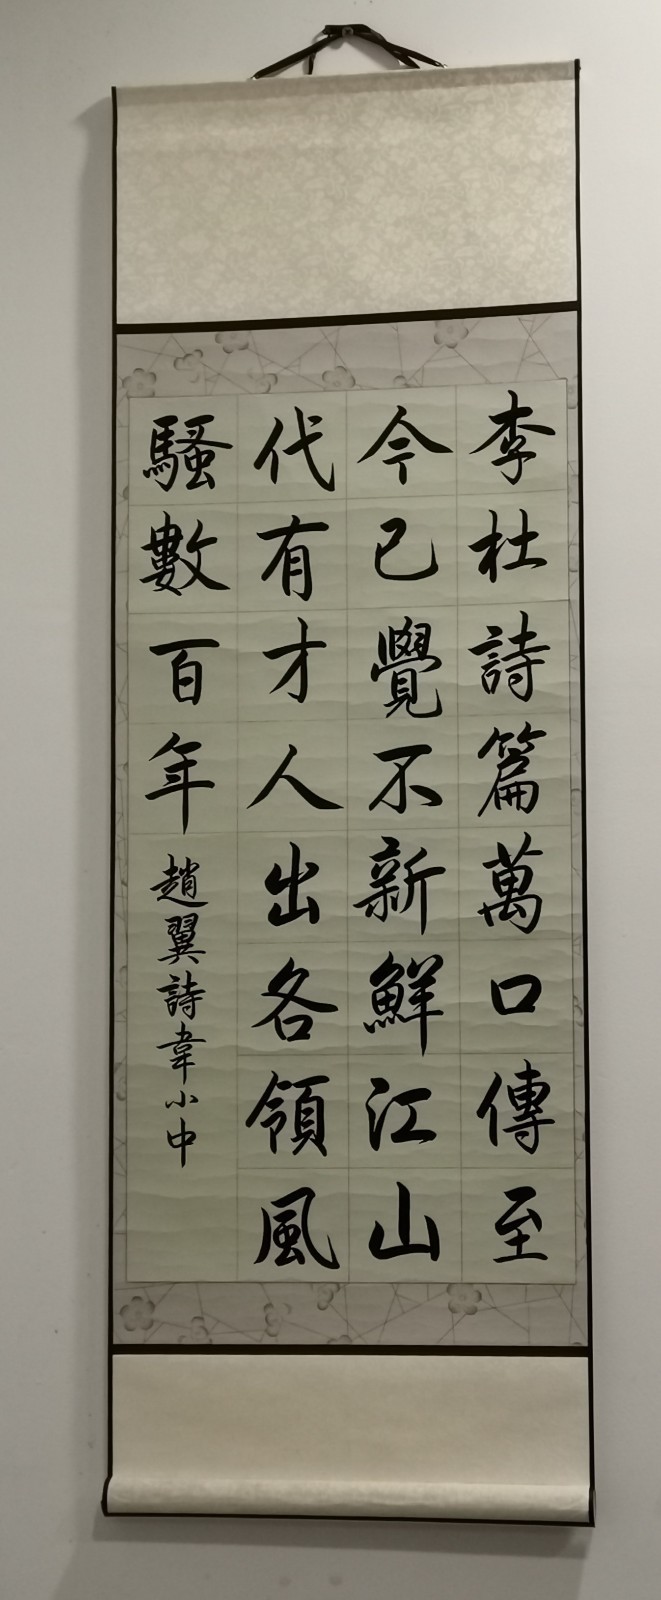 李杜詩篇萬口傳至
今已覺不新鮮江山
代有才人出各領風
騷數百年
趙翼詩韋小中